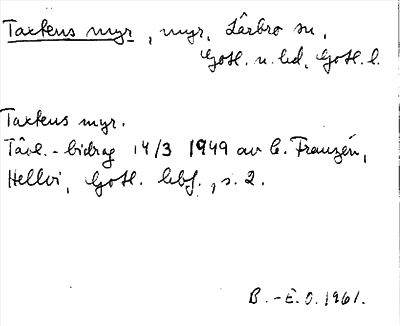 Taxtens myr, myr, Lärbro sn,
Gotl. n. hd, Gotl. l.
Taxtens myr.
Tävl.-bidrag 14/3 1949 av C. Franzén,
Hellvi, Gotl. lbf., s. 2.
B.-E.O. 1961.